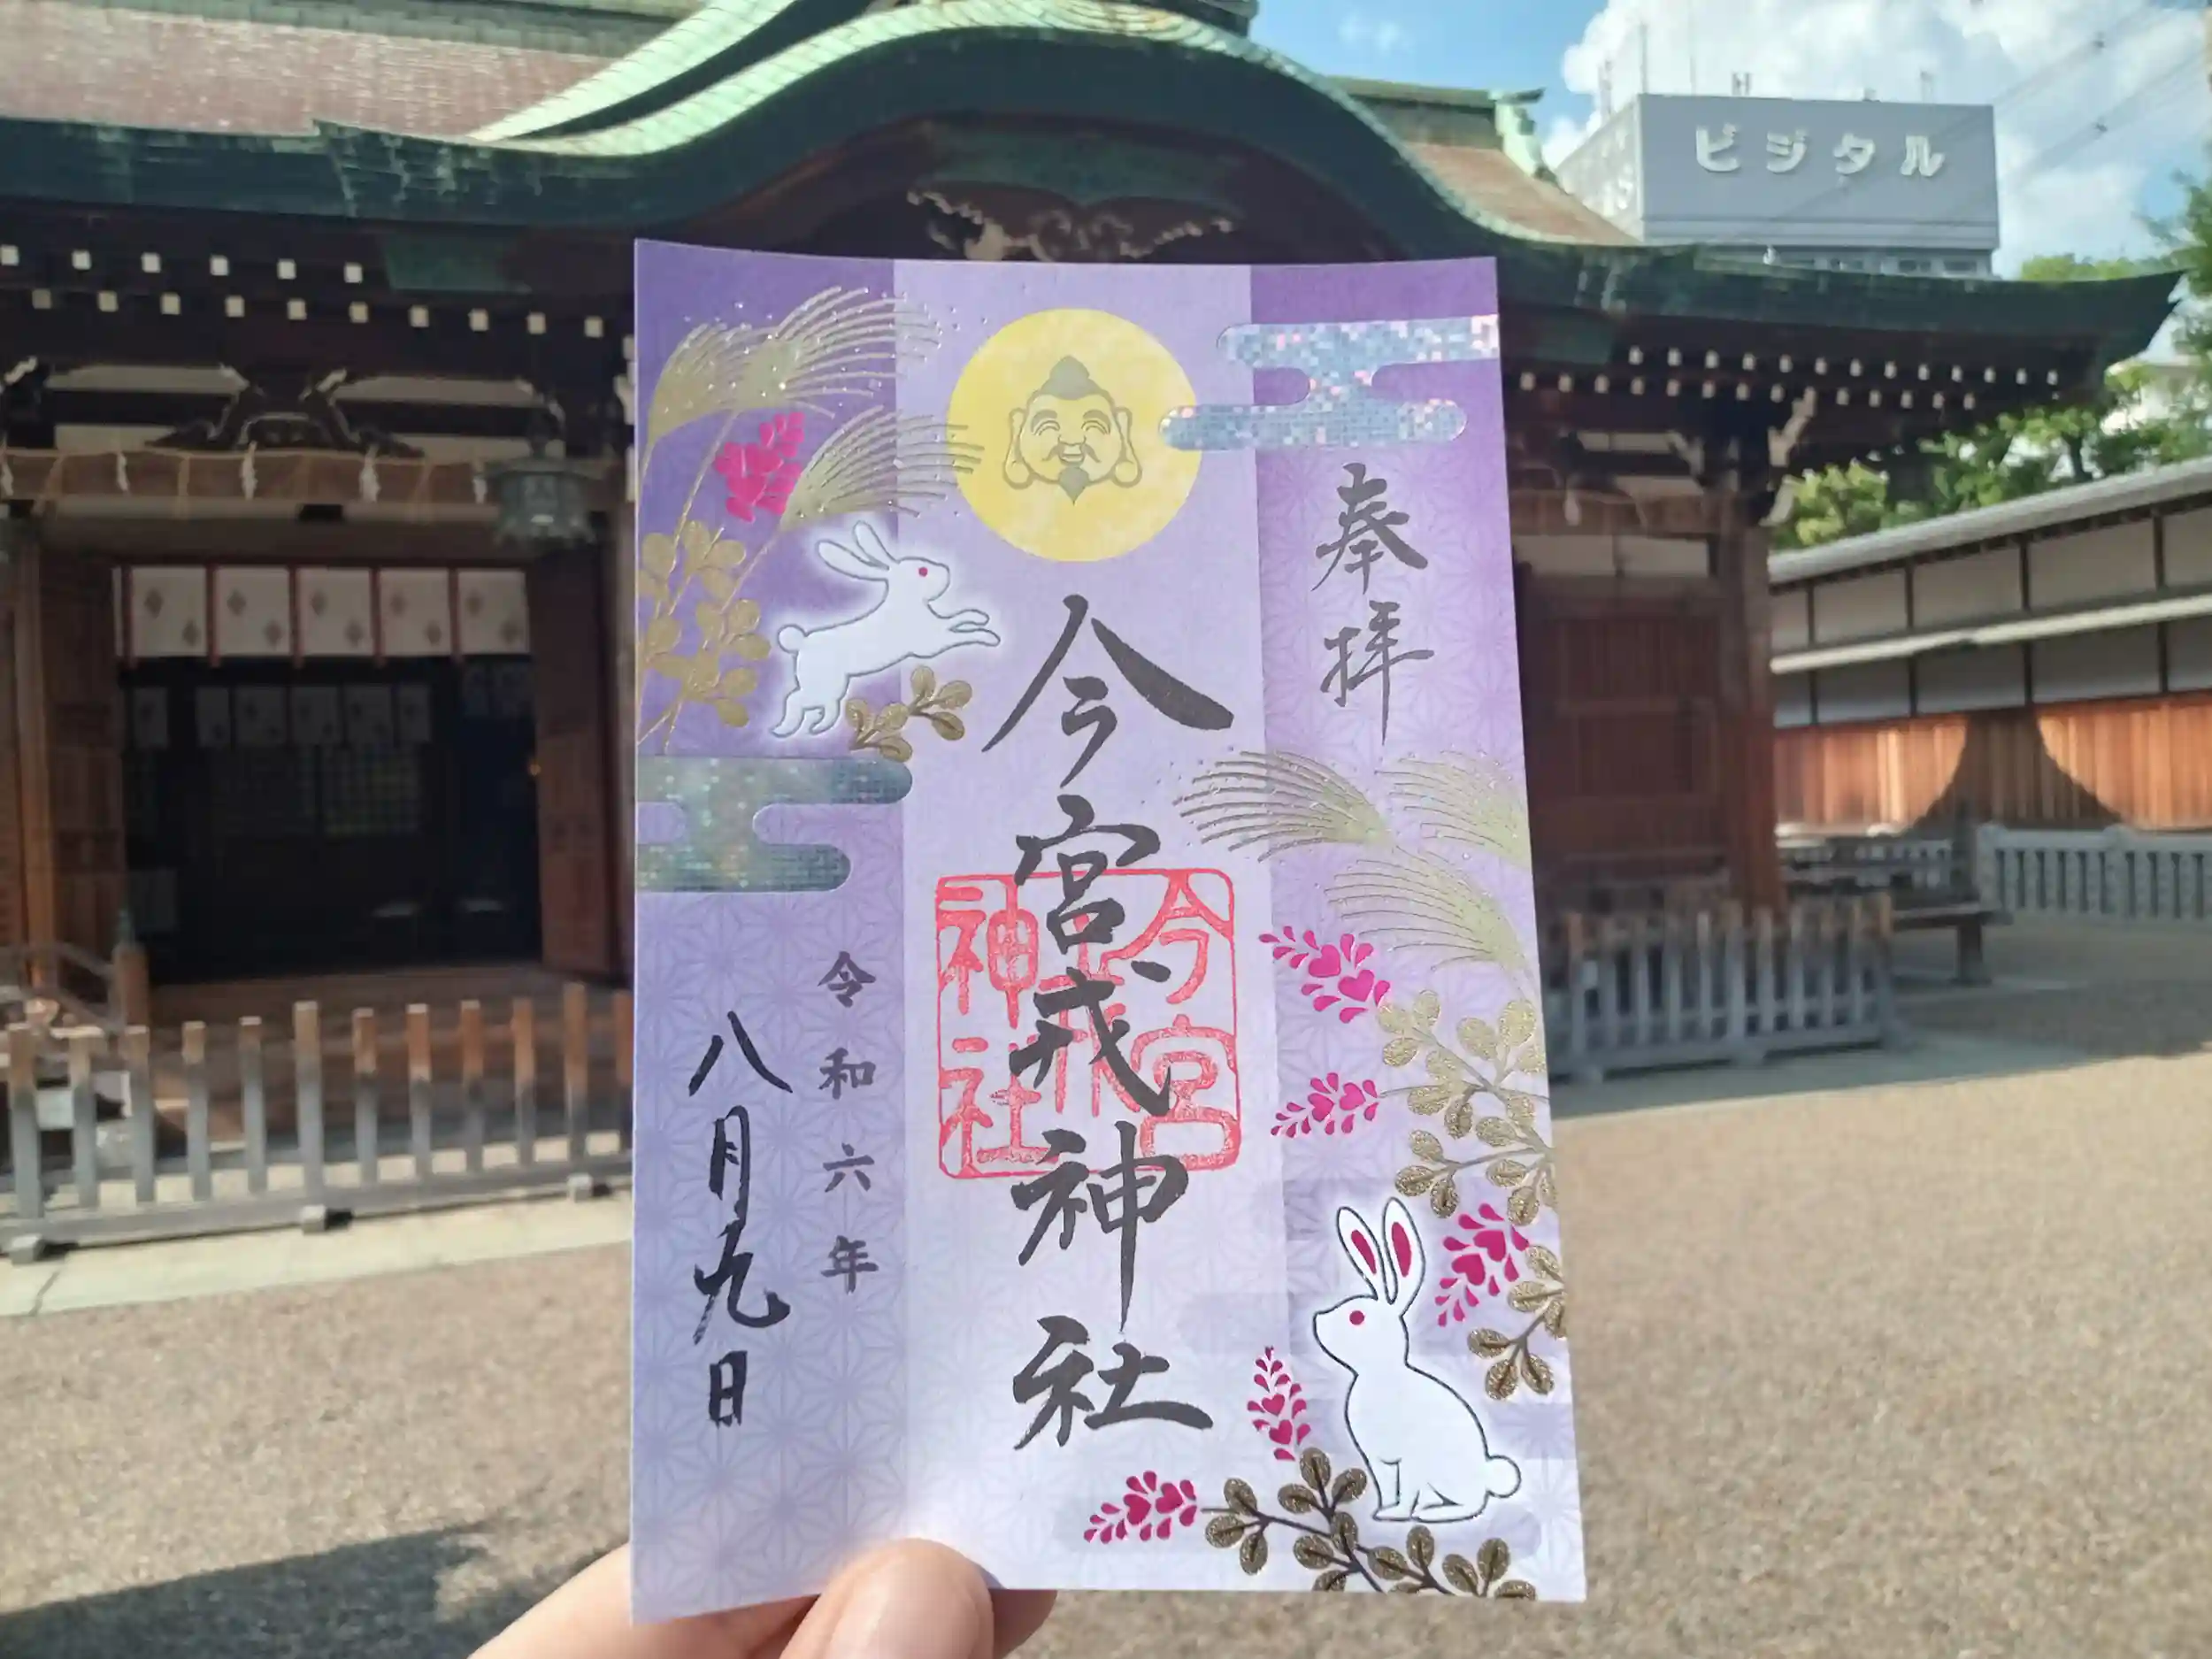 ビジタル
奉拝
今宮戎神社
今宮戎神社
令和六年
八月九日